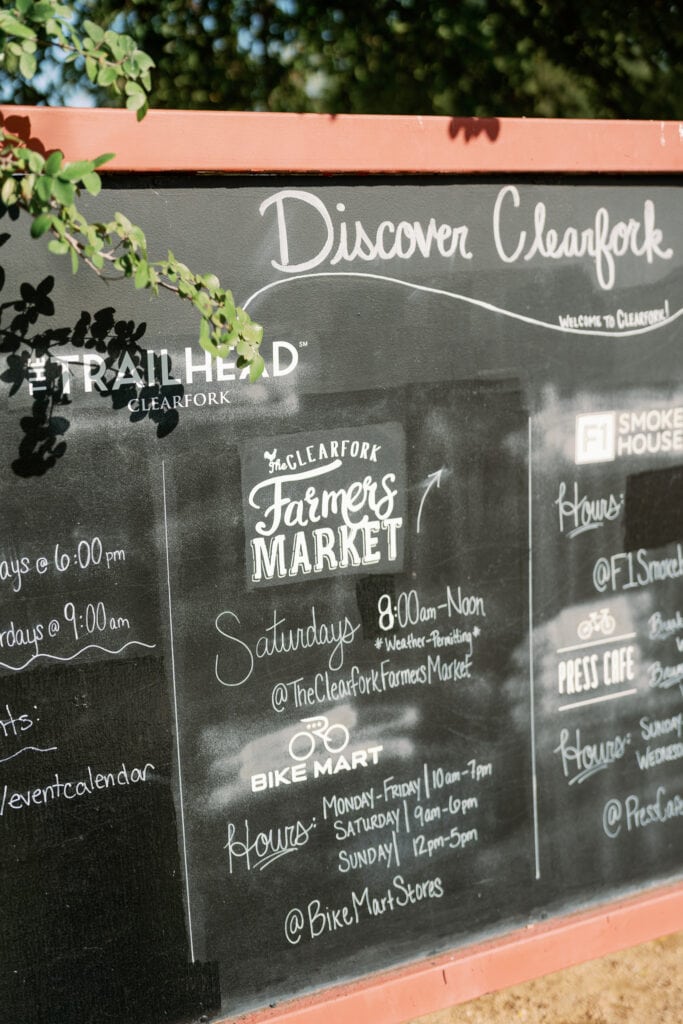 Discover Clearfork
WELCOME TO CLEARFORK!
THE TRAILHEAD℠
CLEARFORK
@ 6:00 pm
@ 9:00 am
/eventcalendar
The CLEARFORK
Farmers
MARKET
Saturdays 8:00am-Noon
*Weather-Permitting*
@TheClearforkFarmersMarket
BIKE MART
Hours: MONDAY-FRIDAY | 10am-7pm
SATURDAY | 9am-6pm
SUNDAY | 12pm-5pm
@BikeMartStores
F1 SMOKE
HOUSE
Hours:
PRESS CAFE
Hours: SUNDAY